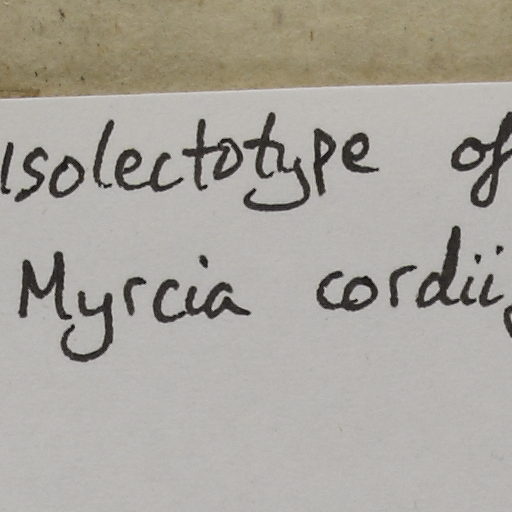 Isolectotype of
Myrcia cordii